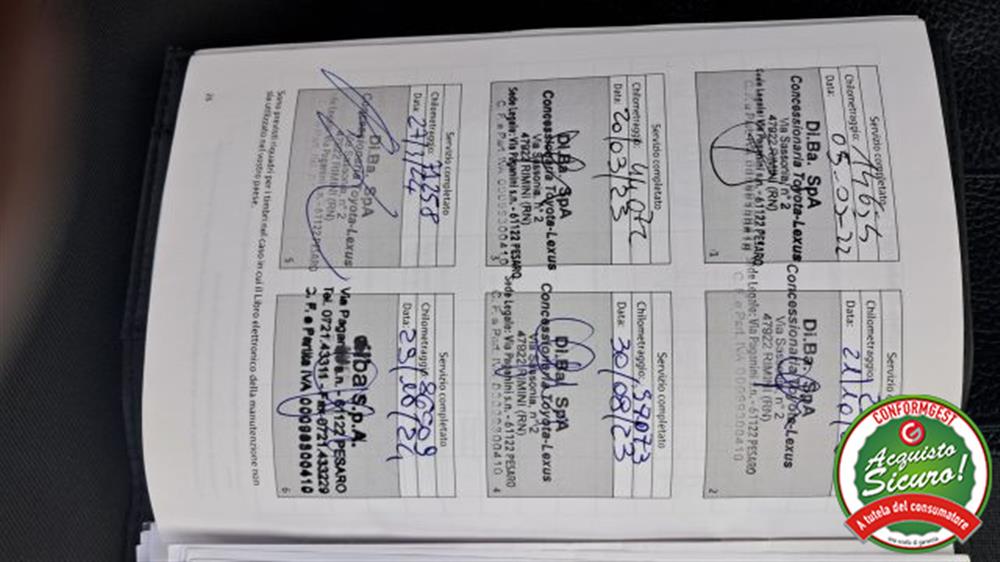 Servizio completato
Chilometraggio:
Data: 05-03-22
Di.Ba. SpA
Concessionaria Toyota-Lexus
Via Sassonia, n° 2
47922 RIMINI (RN)
Sede Legale: Via Paganini s.n. - 61122 PESARO
1
Servizio completato
Chilometraggio
Data:
Di.Ba. SpA
Concessionaria Toyota-Lexus
Via Sassonia, n° 2
47922 RIMINI (RN)
Sede Legale: Via Paganini s.n. - 61122 PESARO
C. F. e Part. IVA 00098300410
2
Servizio completato
Chilometraggio:
Data: 20/03/23
Di.Ba. SpA
Concessionaria Toyota-Lexus
Via Sassonia, n° 2
47922 RIMINI (RN)
Sede Legale: Via Paganini s.n. - 61122 PESARO
C. F. e Part. IVA 00098300410
3
Servizio completato
Chilometraggio: 59073
Data: 30/08/23
Di.Ba. SpA
Concessionaria Toyota-Lexus
Via Sassonia, n° 2
47922 RIMINI (RN)
Sede Legale: Via Paganini s.n. - 61122 PESARO
C. F. e Part. IVA 00098300410
4
Servizio completato
Chilometraggio: 71258
Data: 27/3/24
Di.Ba. SpA
Concessionaria Toyota-Lexus
Via Sassonia, n° 2
47922 RIMINI (RN)
Via Paganini s.n. - 61122 PESARO
5
Servizio completato
Chilometraggio: 80709
Data: 29/08/24
diba S.p.A.
Via Paganini s.n. - 61122 PESARO
Tel. 0721.43311 - Fax 0721.433229
C. F. e Partita IVA 00098300410
6
Sono previsti riquadri per i timbri nel caso in cui il Libro elettronico della manutenzione non
sia utilizzato nel vostro paese.
CONFORMGEST
Acquisto
Sicuro!
A tutela del consumatore